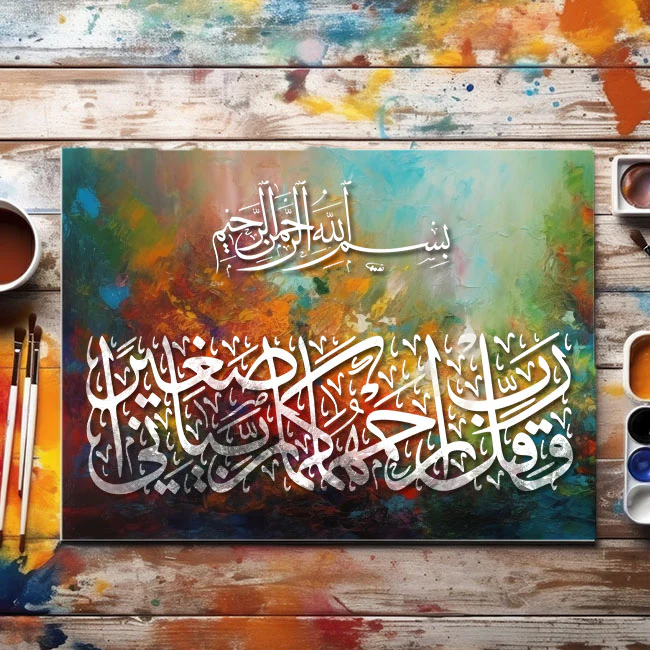 بِسْمِ اللَّهِ الرَّحْمَنِ الرَّحِيمِ
وَقُل رَّبِّ ارْحَمْهُمَا كَمَا رَبَّيَانِي صَغِيرًا